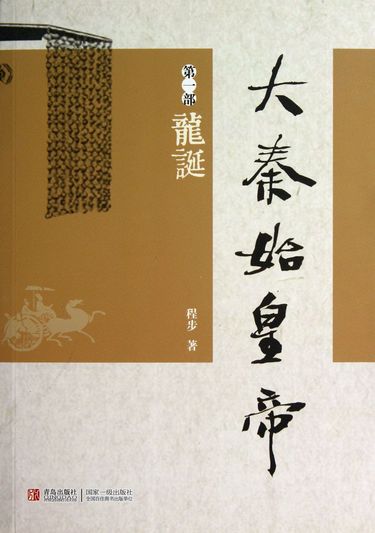 大秦始皇帝
第一部
龍誕
程步 著
青岛出版社
QINGDAO
国家一级出版社
全国百佳图书出版单位